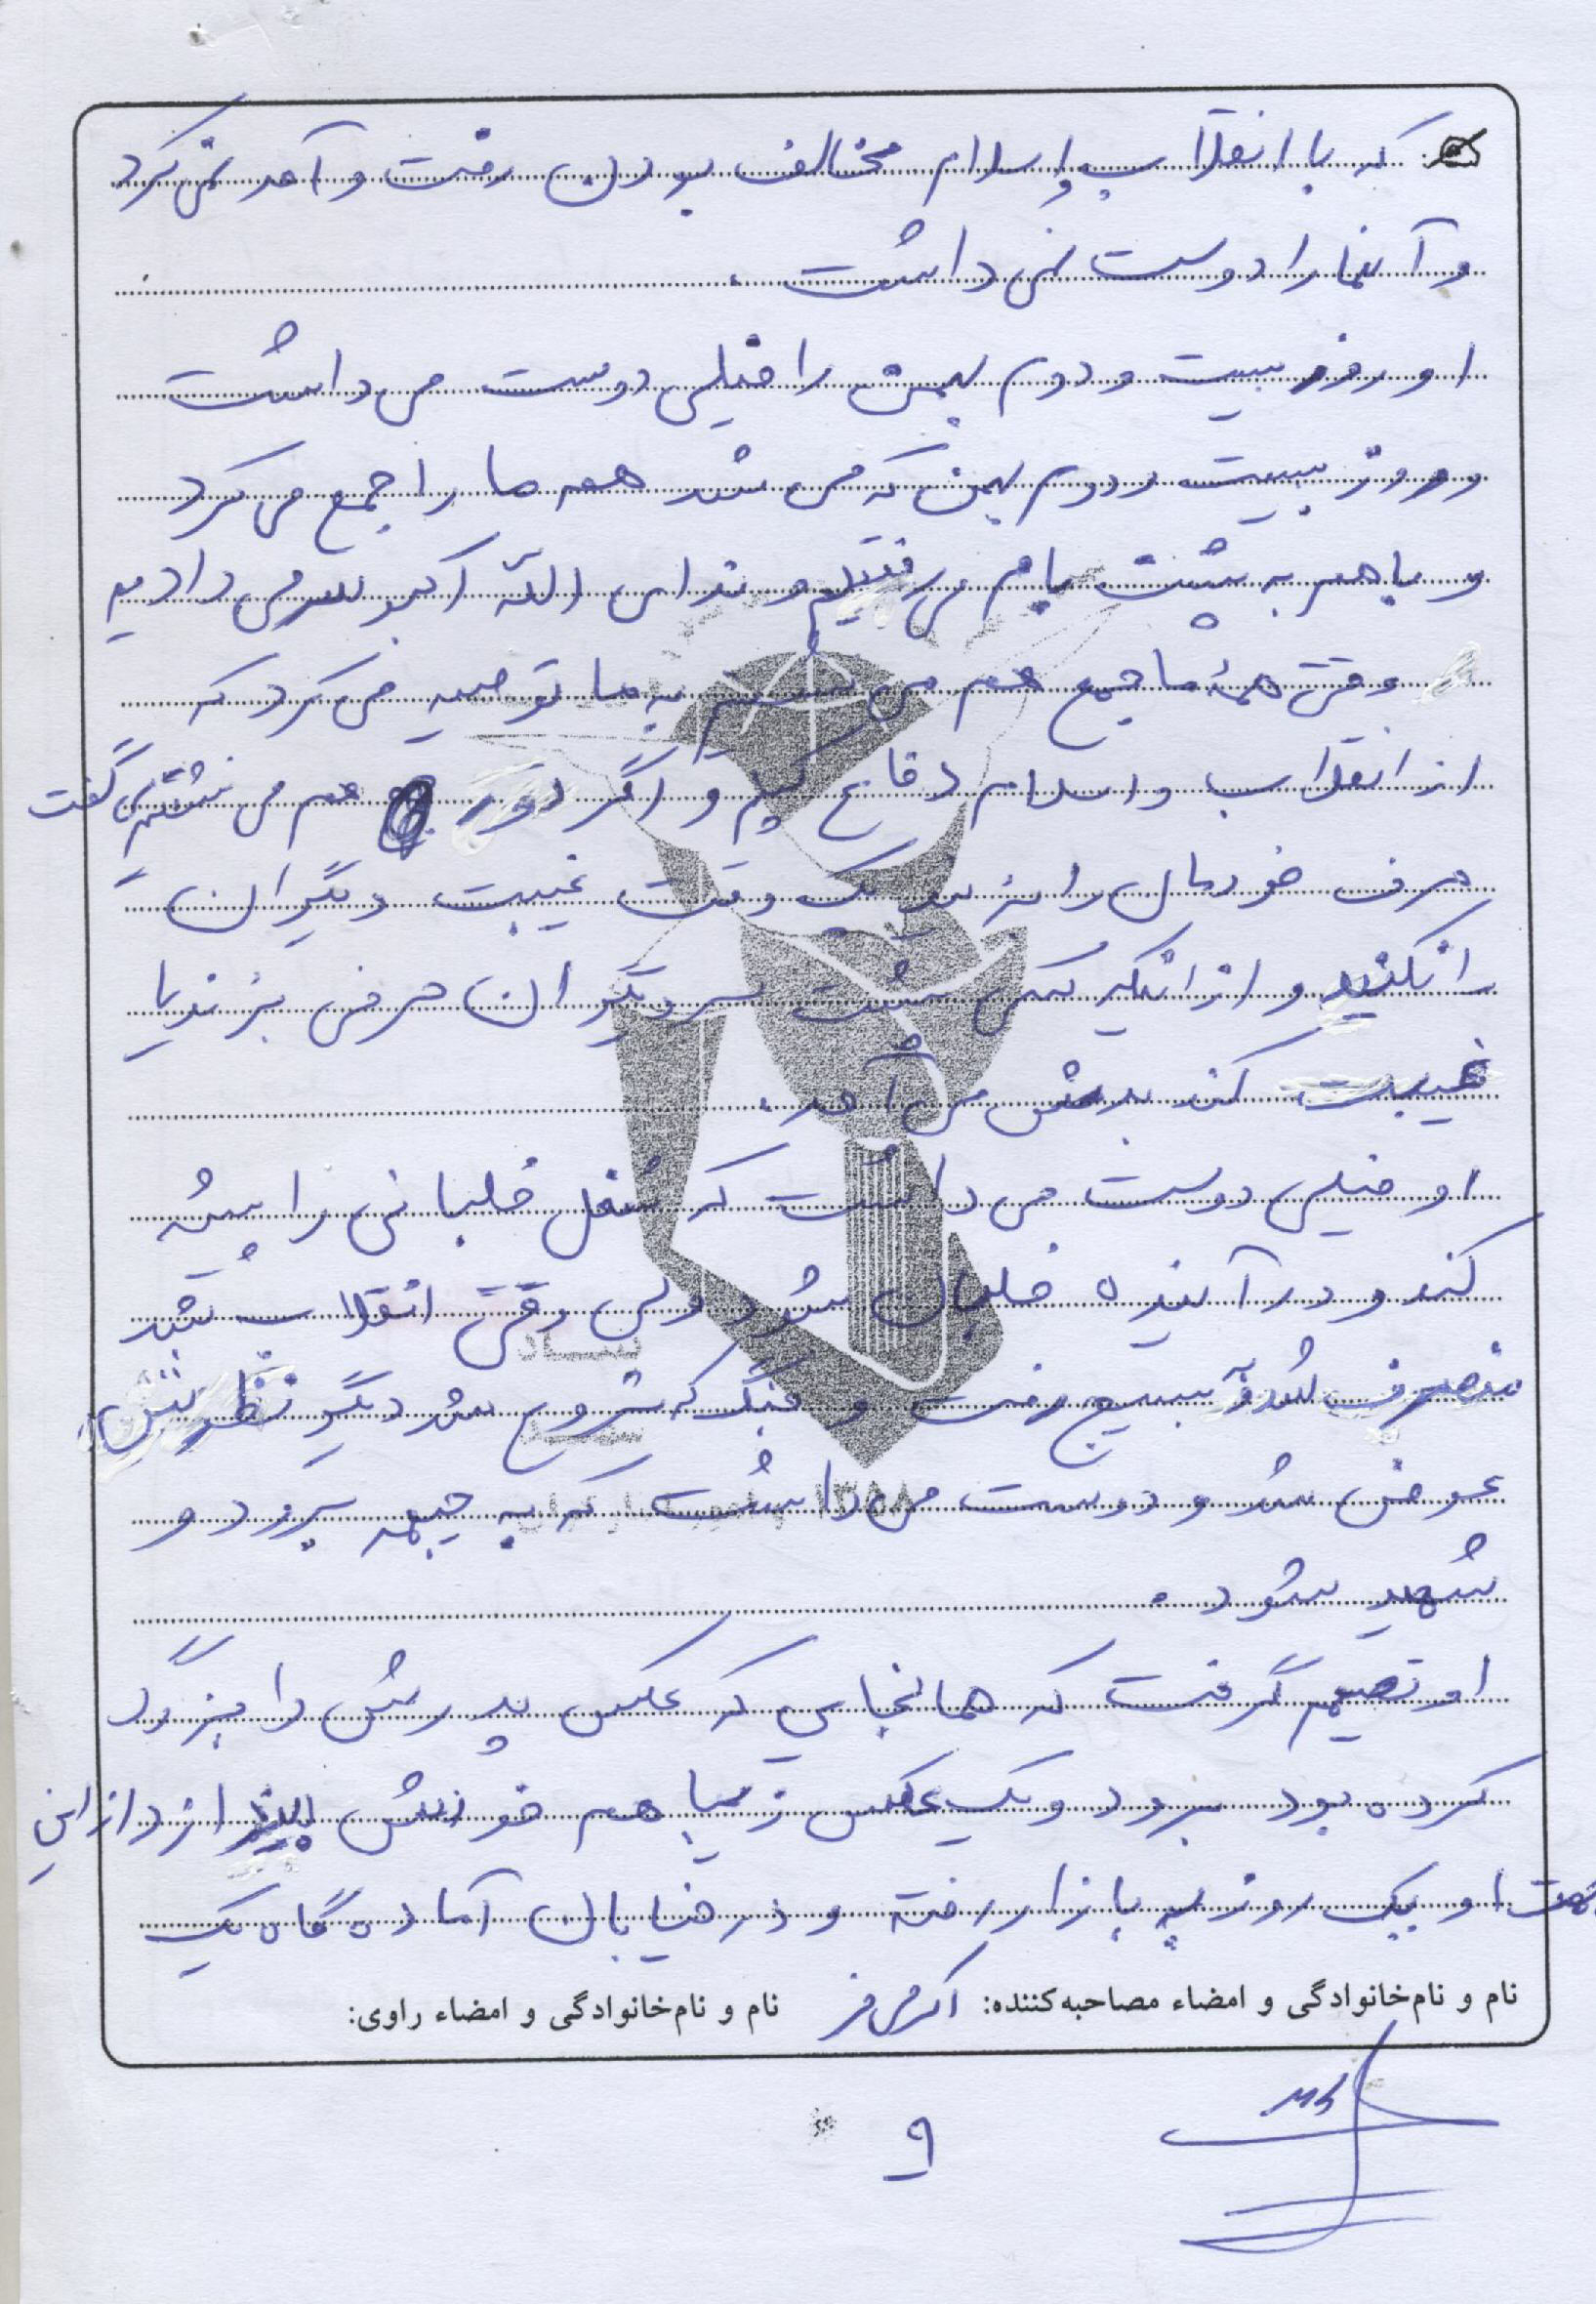 که با انقلاب و اسلام مخالف بودن رفت و آمد نمی کرد
و آنها را دوست نمی داشت .
او روز بیست و دوم بهمن را خیلی دوست می داشت
و روز بیست و دوم بهمن که می شد همه ما را جمع می کرد
و با هم به پشت بام می رفتیم و ندای الله اکبر سر می دادیم
وقتی همهٔ ما جمع هم می شدیم به ما توصیه می کرد که
از انقلاب و اسلام دفاع کنیم و اگر دور هم می نشستیم می گفت
حرف خودمان را بزنید یک وقت غیبت دیگران
را نکنید و از اینکه کسی پشت سر دیگران حرفی بزند یا
غیبت کند بدش می آمد .
او خیلی دوست می داشت که شغل خلبانی را پیشه
کند و در آینده خلبان شود ولی وقتی انقلاب شد
منصرف شد و بسیج رفت و جنگ که شروع شد دیگر نظرش
عوض شد و دوست می داشت که به جبهه برود و
شهید شود .
او تصمیم گرفت که همانجایی که عکس پدرش را بزرگ
کرده بود برود و یک عکس زیبا هم خودش بیندازد از این
جهت او یک روز به بازار رفته و در خیابان آماده گاه یک
نام و نام‌خانوادگی و امضاء مصاحبه‌کننده: نام و نام‌خانوادگی و امضاء راوی:
۹